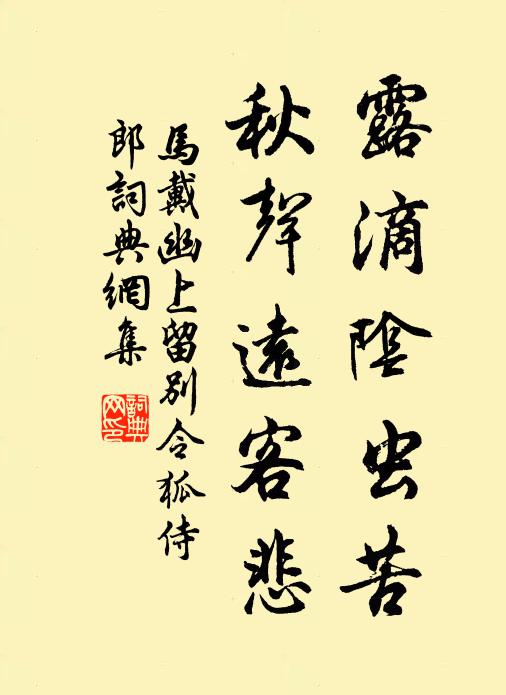 露滴陰虫苦
秋聲遠客悲
馬戴幽上留別令狐侍
郎詞典網集
詞典
网印